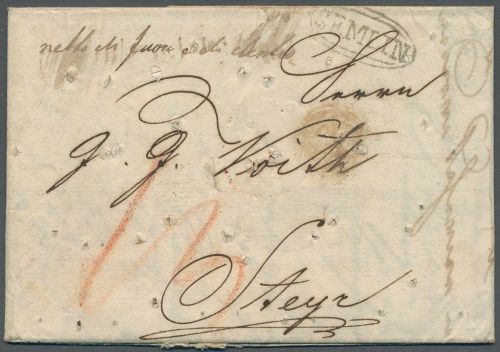 netto di fuori e di dentro
SEMLIN
Herrn
J. J. Voith
Steyr